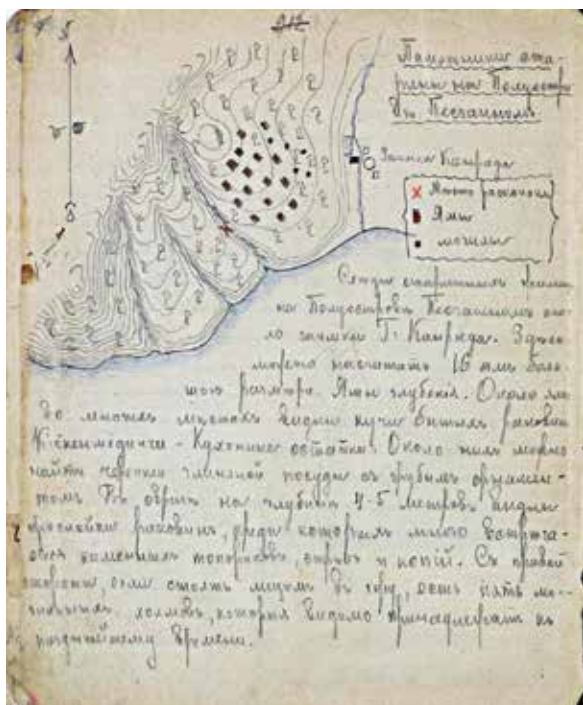 Памятники ста-
рины на Полуостро
въ Песчаномъ
Заимка Конрада
Место раскопки
Ямы
могилы
Следы стариннаго
на Полуострове Песчаномъ око
ло заимки Г. Конрада. Здесь
можно насчитать 16 ямъ боль
шого размера. Ямы глубокiя. Около
во многихъ местахъ видны кучи битыхъ раковин
Кьёкенмединги - Кухонные остатки. Около нихъ можно
найти черепки глиняной посуды съ грубымъ орнамен-
томъ. Въ обрыве на глубине 4-5 метровъ видны
прослойки раковинъ, среди которыхъ много встреча-
ется каменныхъ топориковъ, стрелъ и копiй. Съ правой
стороны, если стоять лицомъ въ гору, есть пять мо-
гильныхъ холмовъ, которыя видимо принадлежатъ къ
позднейшему времени.